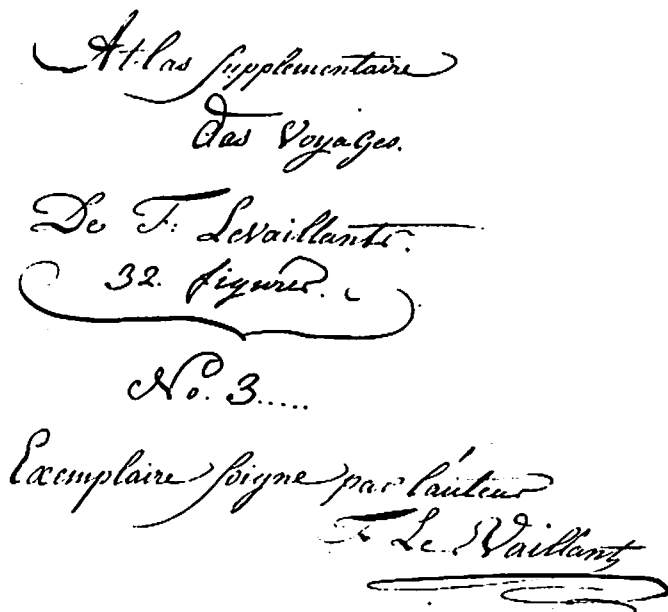 Atlas supplementaire
das Voyages.
De F. Levaillants.
32. figures.
No. 3.....
Exemplaire soigne par l'auteur
F. Le Vaillant